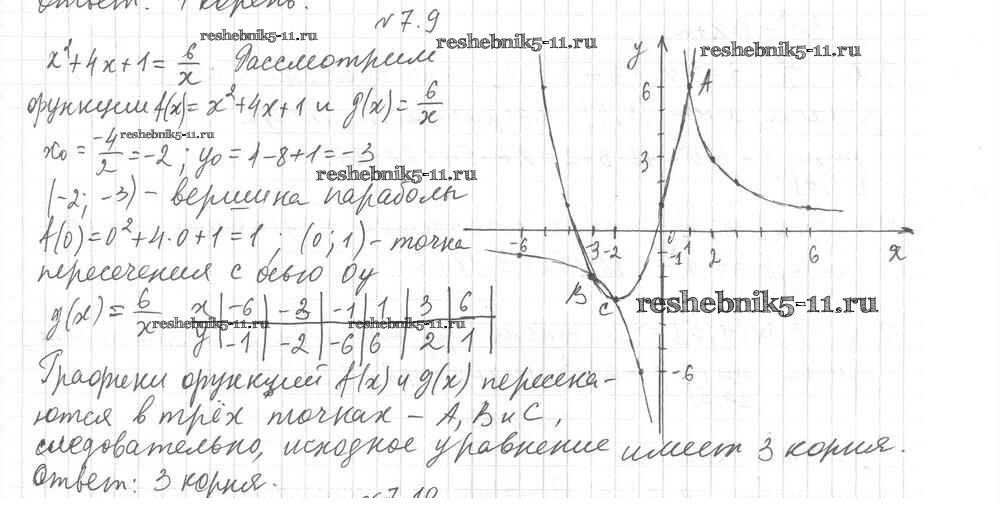 Ответ: 1 корень.
№7.9
x²+4x+1 = 6/x. Рассмотрим
функции f(x)=x²+4x+1 и g(x)=6/x
x₀ = -4/2 = -2; y₀ = 4-8+1 = -3
(-2; -3) - вершина параболы
f(0)=0²+4·0+1=1; (0; 1) - точка
пересечения с осью Oy
g(x) = 6/x
x | -6 | -3 | -1 | 1 | 3 | 6
y | -1 | -2 | -6 | 6 | 2 | 1
Графики функций f(x) и g(x) пересека-
ются в трёх точках - A, B и C,
следовательно, исходное уравнение имеет 3 корня.
Ответ: 3 корня.
№7.10
y
A
6
3
-6 -3 -2 0 1 2 6 x
-1
B
C
-6
reshebnik5-11.ru
reshebnik5-11.ru
reshebnik5-11.ru
reshebnik5-11.ru
reshebnik5-11.ru
reshebnik5-11.ru
reshebnik5-11.ru
reshebnik5-11.ru